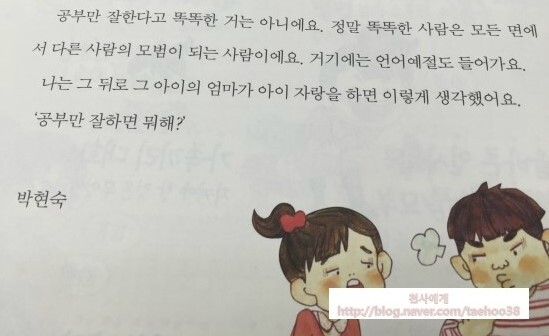 공부만 잘한다고 똑똑한 거는 아니에요. 정말 똑똑한 사람은 모든 면에
서 다른 사람의 모범이 되는 사람이에요. 거기에는 언어예절도 들어가요.
나는 그 뒤로 그 아이의 엄마가 아이 자랑을 하면 이렇게 생각했어요.
'공부만 잘하면 뭐해?'
박현숙
청사에게
http://blog.naver.com/taehoo38